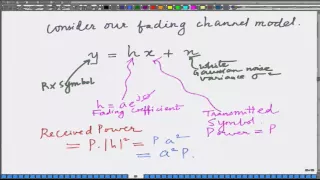 consider our fading channel model.
y = h x + n
Rx Symbol
White Gaussian noise variance σ²
h = ae^{jφ}
Fading coefficient
Transmitted Symbol. Power = P
Received Power
= P.|h|² = P a²
= a² P.